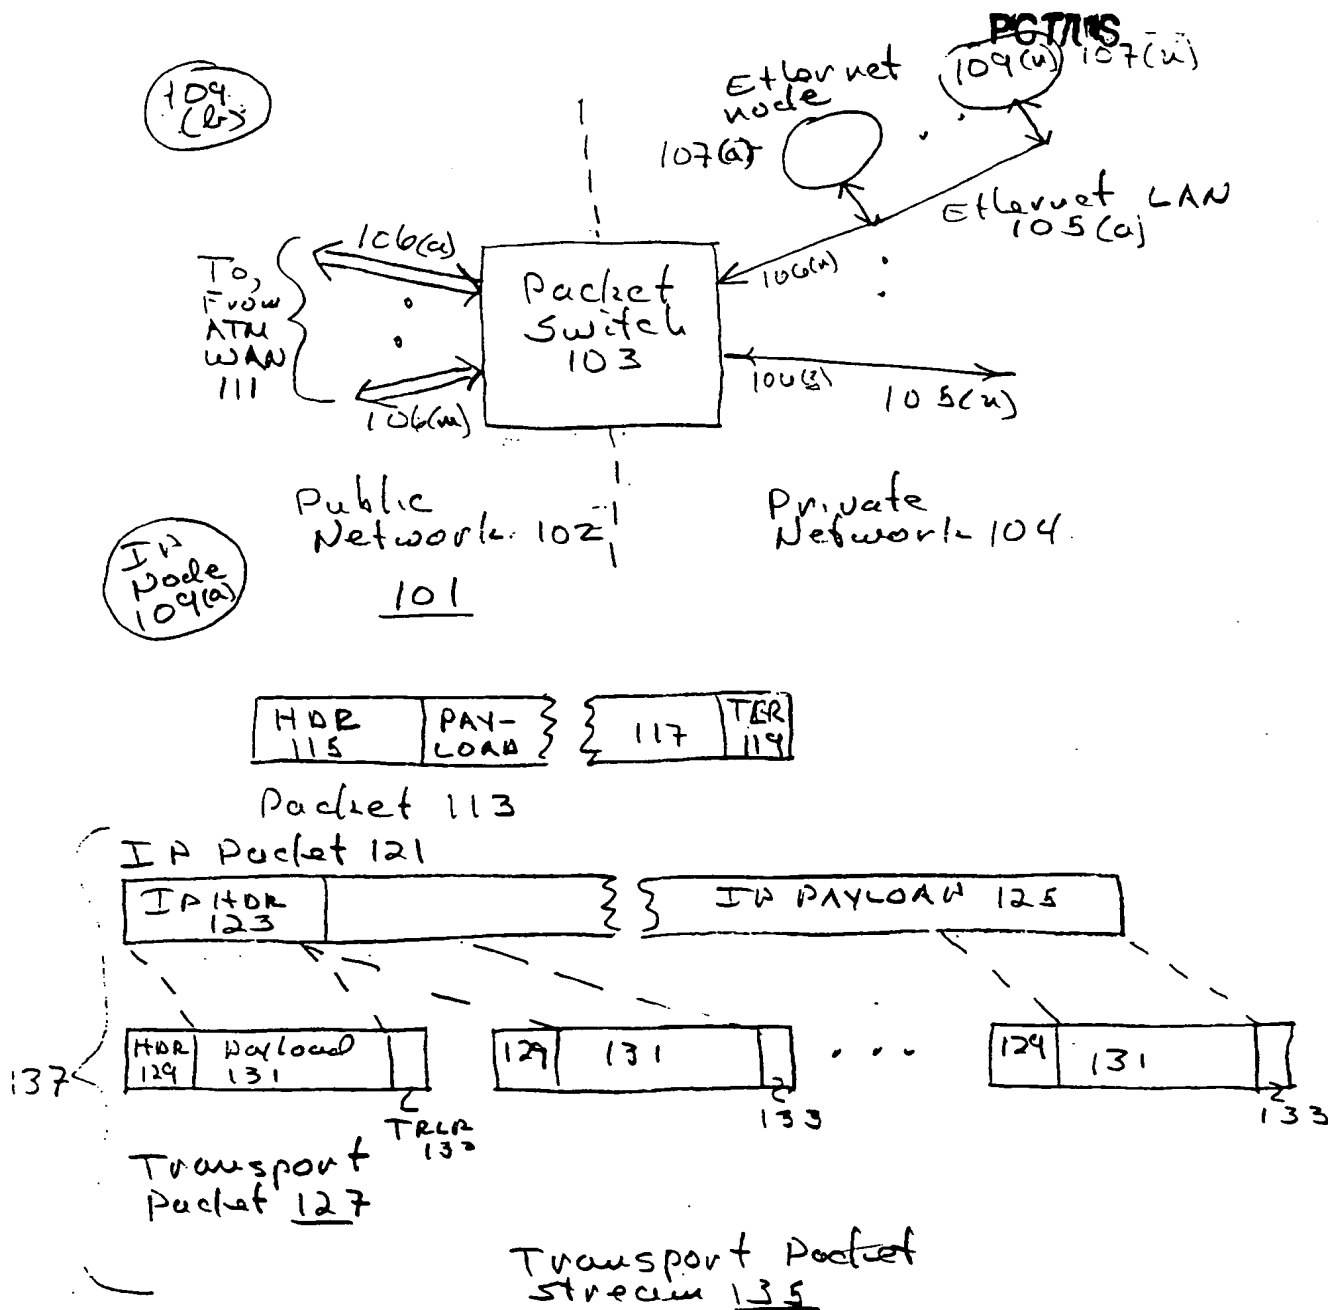 PCT/US
109
(b)
Ethernet
node
107(a)
109(n)
107(n)
Ethernet LAN
105(a)
106(a)
To,
From
ATM
WAN
111
Packet
Switch
103
106(n)
106(m)
105(n)
Public
Network 102
Private
Network 104
IP
Node
109(a)
101
HDR
115
PAY-
LOAD
117
TLR
119
Packet 113
IP Packet 121
IP HDR
123
IP PAYLOAD 125
137
HDR
129
Payload
131
129
131
129
131
TRLR
133
133
133
Transport
Packet 127
Transport Packet
Stream 135